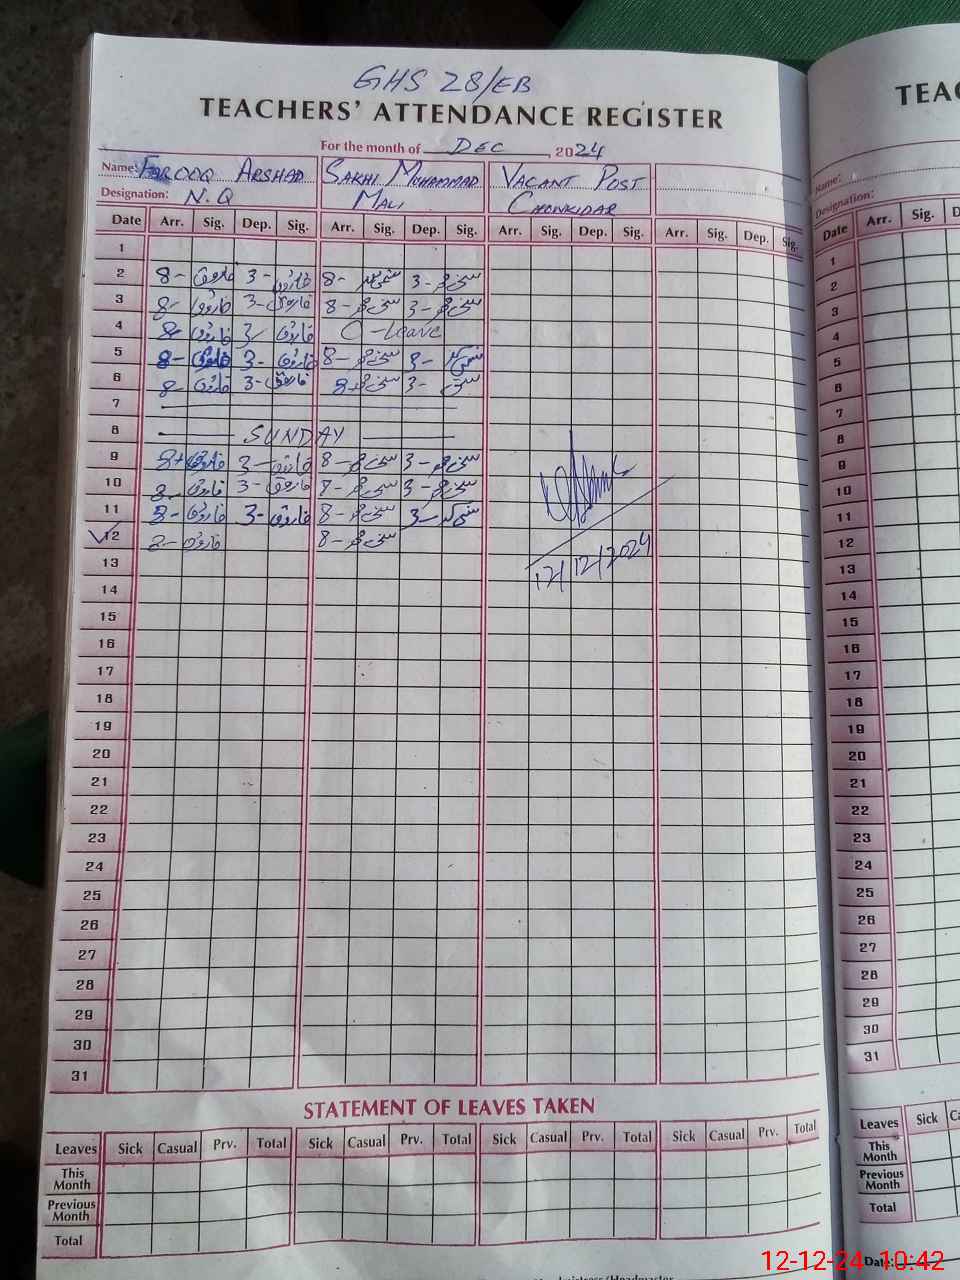 GHS 28/EB
TEACHERS' ATTENDANCE REGISTER
For the month of DEC, 2024
Name: FAROOQ ARSHAD SAKHI MUHAMMAD VACANT POST
Designation: N.Q MALI CHOWKIDAR
Date Arr. Sig. Dep. Sig. Arr. Sig. Dep. Sig. Arr. Sig. Dep. Sig. Arr. Sig. Dep. Sig.
1
2 8- فاروق 3- فاروق 8- 3-
3 8- فاروق 3- فاروق 8- 3-
4 8- فاروق 3- فاروق C-Leave
5 8- فاروق 3- فاروق 8- 3-
6 8- فاروق 3- فاروق 8- 3-
7
8 SUNDAY
9 8- فاروق 3- فاروق 8- 3-
10 8- فاروق 3- فاروق 8- 3-
11 8- فاروق 3- فاروق 8- 3-
12 8- فاروق 8-
12/12/2024
13
14
15
16
17
18
19
20
21
22
23
24
25
26
27
28
29
30
31
STATEMENT OF LEAVES TAKEN
Leaves Sick Casual Prv. Total Sick Casual Prv. Total Sick Casual Prv. Total Sick Casual Prv. Total
This Month
Previous Month
Total
TEAC
Name:
Designation:
Date Arr. Sig. D
1
2
3
4
5
6
7
8
9
10
11
12
13
14
15
16
17
18
19
20
21
22
23
24
25
26
27
28
29
30
31
Leaves Sick Ca
This Month
Previous Month
Total
Date:
12-12-24 10:42